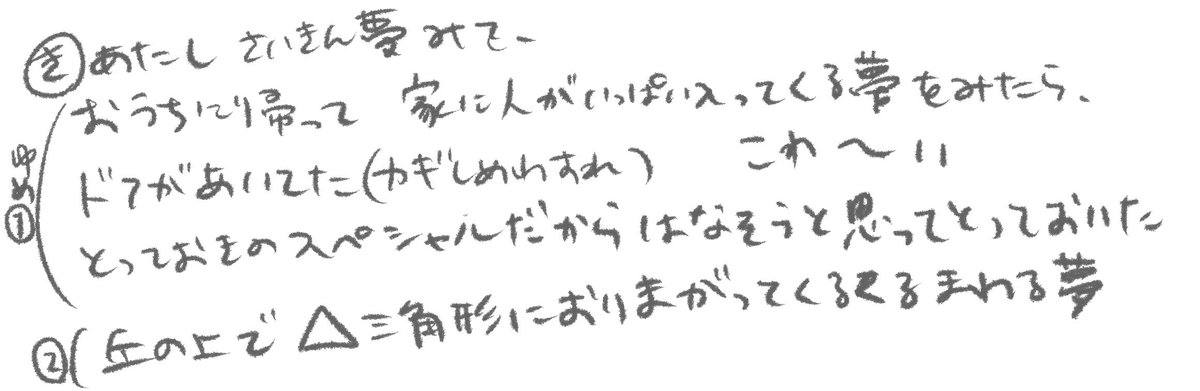 ㋖ あたし さいきん夢みて、
おうちに帰って 家に人がいっぱい入ってくる夢をみたら、
ゆめ① ドアがあいてた(カギしめわすれ) これ〜い
とっておきのスペシャルだからはなそうと思ってとっておいた
② 丘の上で △三角形におりまがってくるくるまわる夢